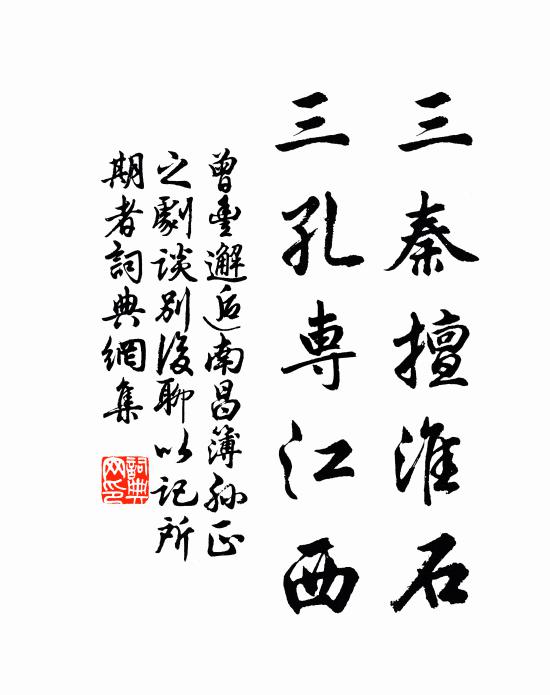 三秦擅淮石
三孔専江西
曾豊邂逅南昌簿孙正
之劇談别後聊以记所
期者詞典網集
詞典
网印